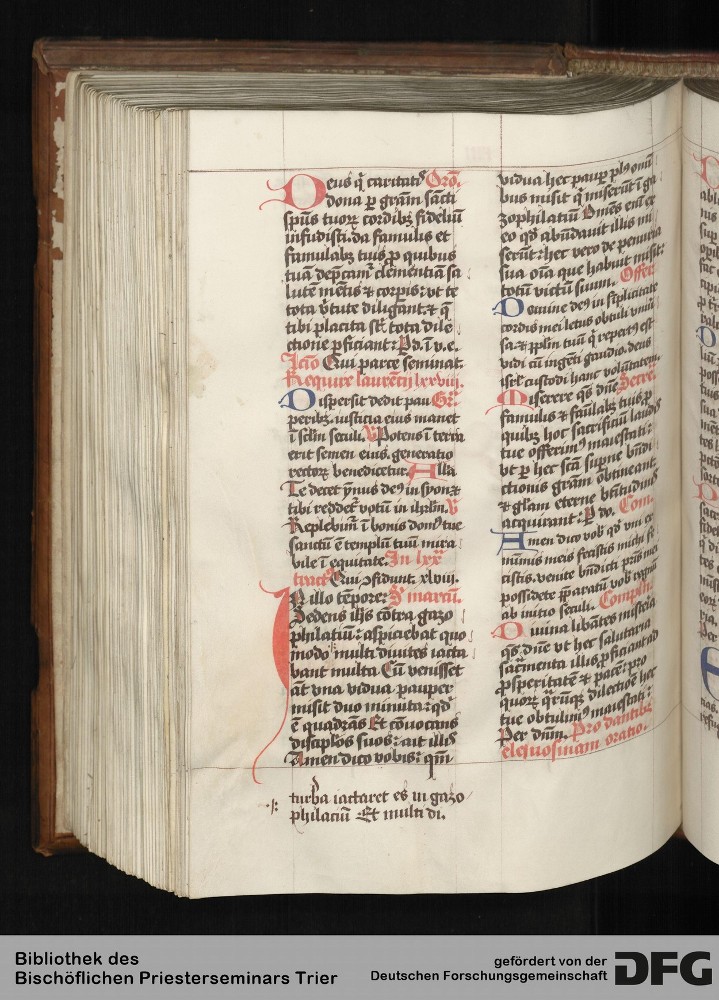 Deus q̄ caritatꝭ Oro.
dona ꝑ gr̄am sācti
sp̄us tuoꝝ cordibꝫ fideliū
infudisti. da famulis et
famulabꝫ tuis ꝓ quibus
tuā dep̄cam᷑ clementiā sa
lutē mētis ⁊ corꝑis: vt te
tota v̄tute diligāt. ⁊ q̄
tibi placita st̄ tota dile
ctione ꝑficiant: P d. ī v. e.
Lcīo Qui parce seminat.
Require laurecij lxxviij.
Dispersit dedit pau Gr̄.
peribꝫ. iusticia eius manet
ī sc̄lm seculi. V Potens ī terra
erit semen eius. generatio
rectoꝝ benedicetur. Alla
Te decet ymnus deꝰ in syon ⁊
tibi reddet᷑ votū in ihrlm̄. V
Replebim᷑ ī bonis domꝰ tue
sanctū ē templū tuū mira
bile ī equitate. In lxx
tractꝰ Qui ꝯfidunt. xlviij.
IN illo tēpore: S marcū.
Sedens ihs cōtra gazo
philatiū: aspiciebat quo
modo multi diuites iacta
bant multa. Cū venisset
āt vna vidua pauper
misit duo minuta: qd̓
ē quadrās Et cōuocans
discip̄los suos: ait illis
Amen dico vobis: qm̄
turba iactaret es in gazo
philaciū Et multi di.
vidua hec pauꝑ plꝰ om̄i
bus misit q̄ miserūt ī ga
zophilatiū Om̄es em̄ ex
eo qd̓ abūdauit illis mi
serūt: hec vero de penuria
sua om̄ia que habuit misit:
totū victū suum. Offer.
Domine deꝰ in sīplicitate
cordis mei letus obtuli vniū
sa. ⁊ pplm̄ tuū q̄ reꝑtꝰ est
vidi cū ingēti gaudio. deus
isrl̄ custodi hanc volūtatem.
Miserere qs̄ dn̄e Secre.
famulis ⁊ faūlabꝫ tuis ꝓ
quibꝫ hoc sacrificiū laudis
tue offerimꝰ maiestati:
vt ꝑ hec sc̄a supne bn̄di
ctionis gr̄am obtineant.
⁊ gl̄am eterne btītudinis
acquirant: P do. Com.
Amen dico vob̓ qd̓ vni ex
minimis meis fecistis michi fe
cistis. venite bn̄dicti pr̄is mei
possidete p̄paratū vob̓ regnū
ab initio seculi. Compl̄.
Diuina libātes misteria
qs̄ dn̄e vt hec salutaria
sacr̄menta illis ꝓficiant ad
ꝓsperitatē ⁊ pacē: pro
quoꝝ q̄rūqꝫ dilectiōe hec
tue obtulimꝰ maiestati:
Per dn̄m. Pro dantibꝫ
elemosinam oratio.
Bibliothek des
Bischöflichen Priesterseminars Trier
gefördert von der
Deutschen Forschungsgemeinschaft
DFG